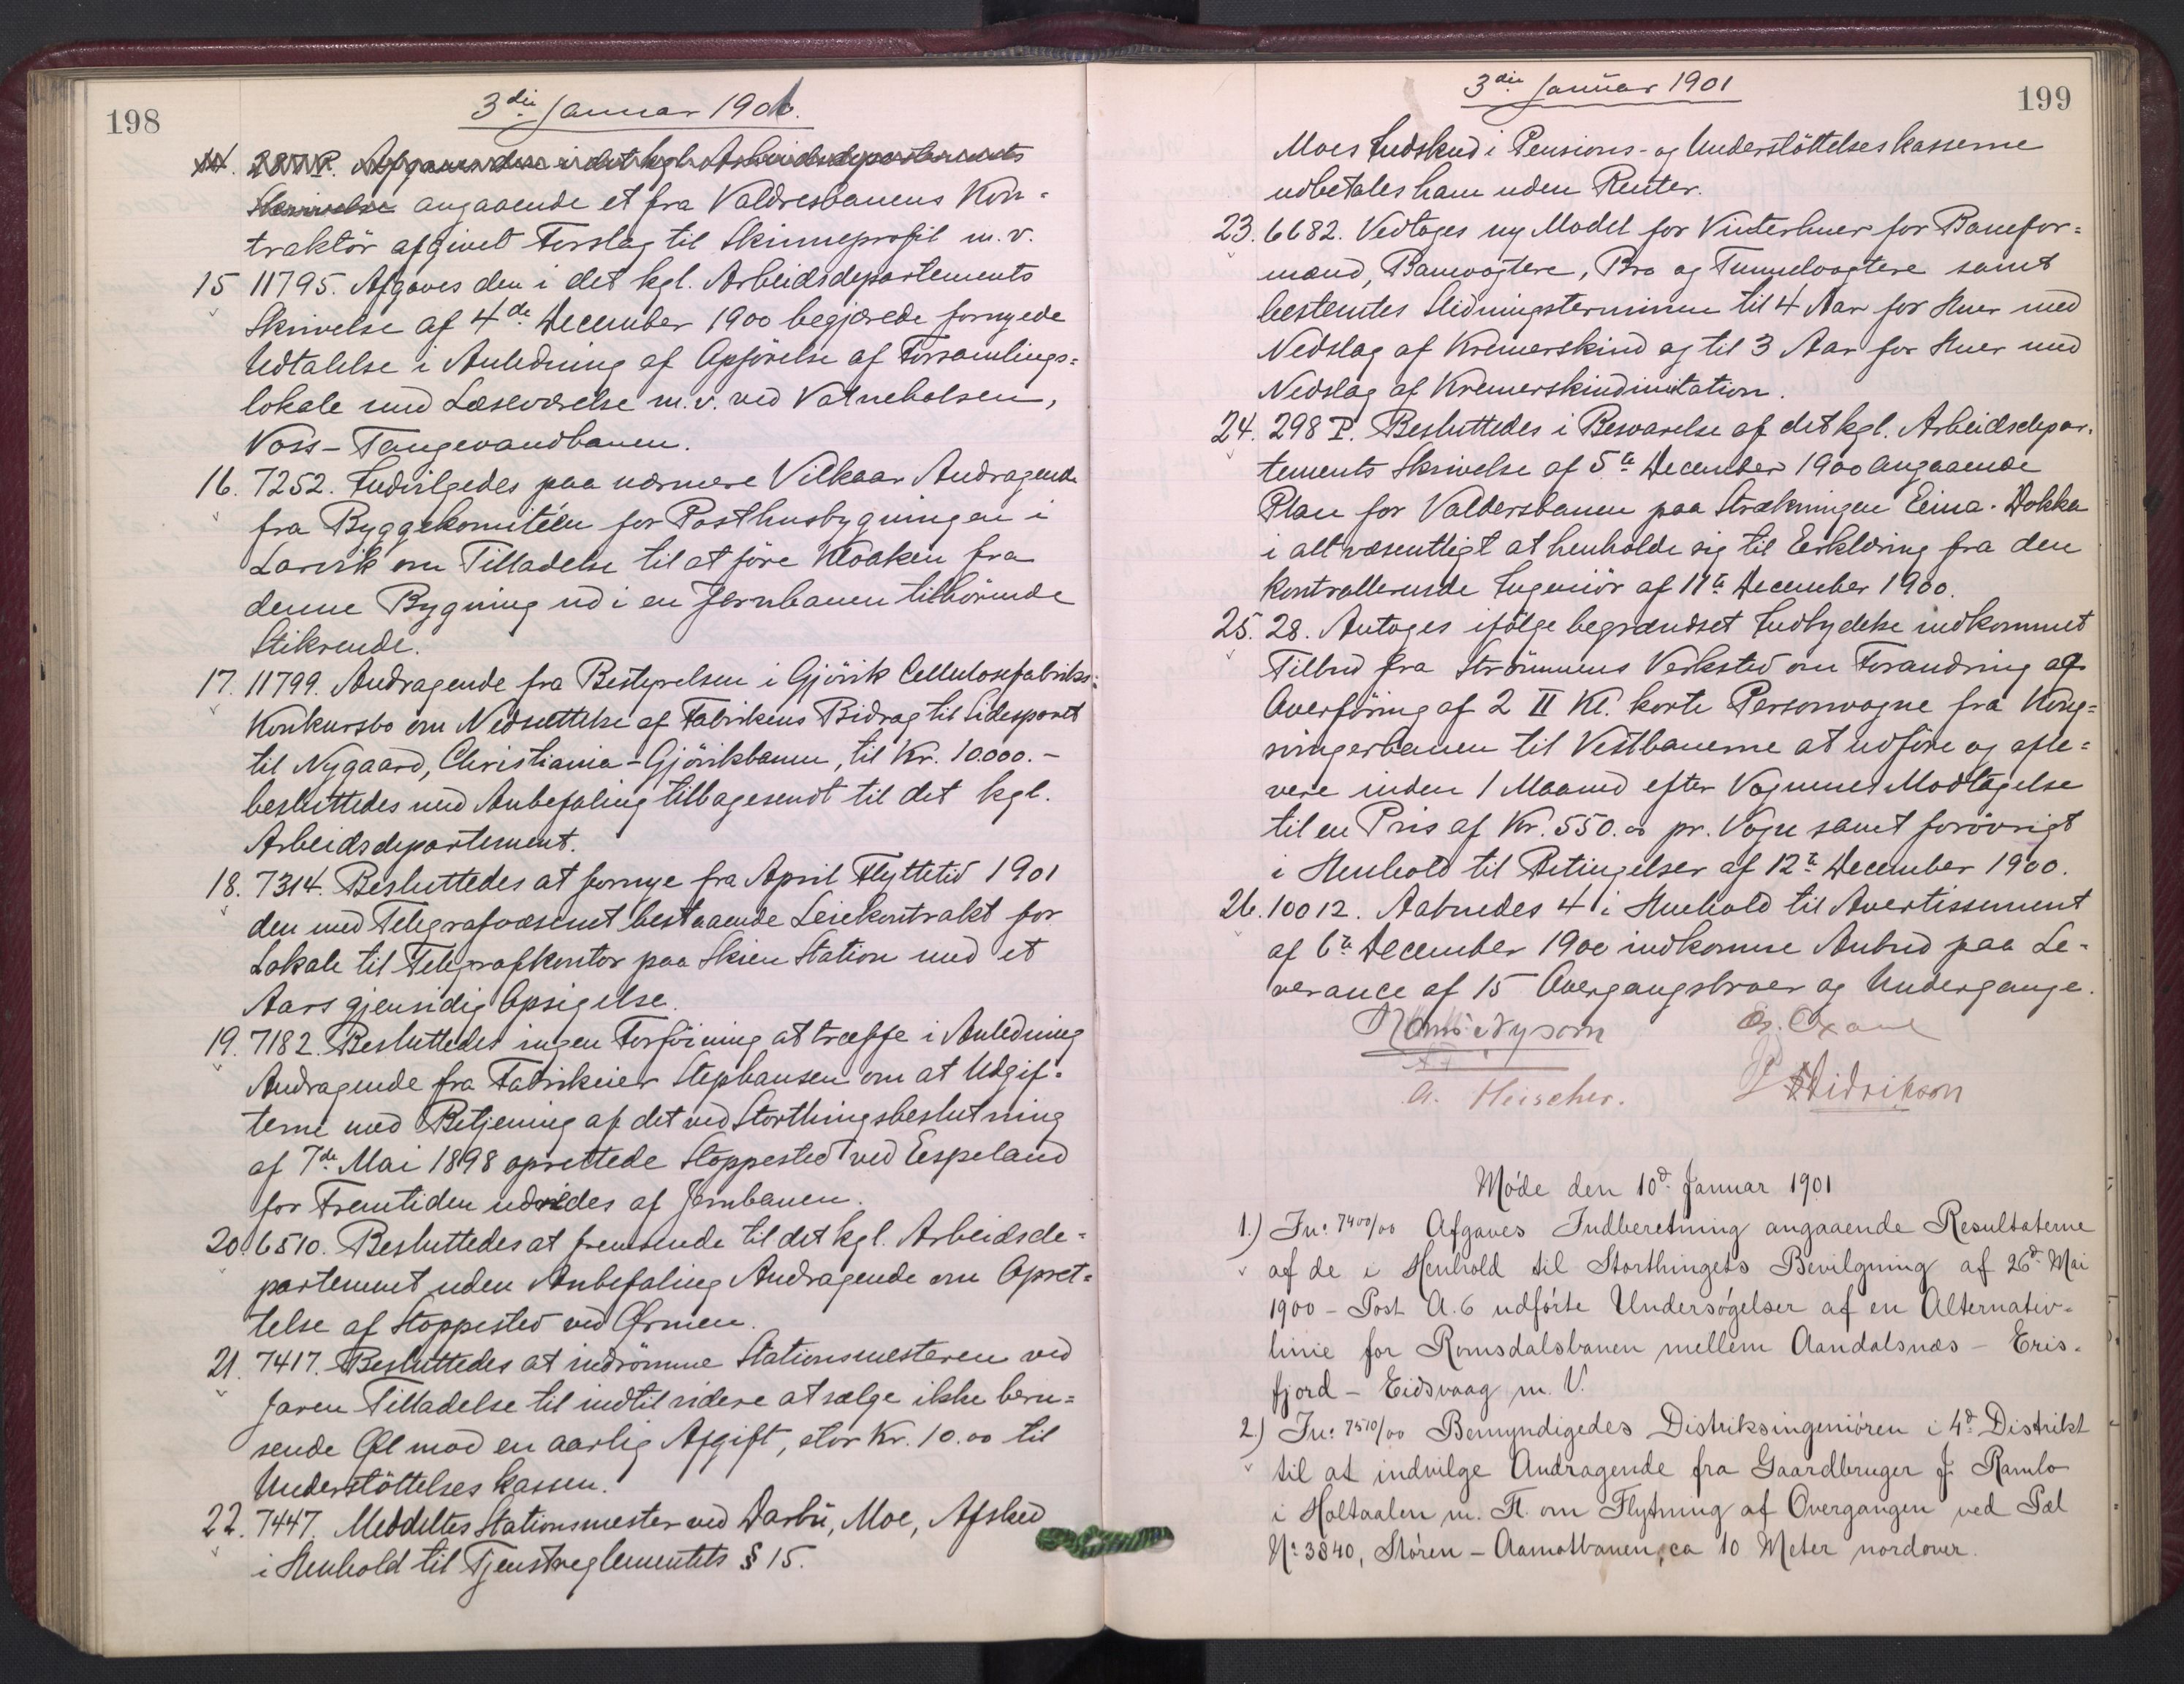 198
3die Januar 1901.
14. 287 P. Afgaves den i det kgl. Arbeidsdepartements
Skrivelse angaaende et fra Valdresbanens Kon-
traktör afgivet Forslag til Skinneprofil m.v.
15 11795. Afgaves den i det kgl. Arbeidsdepartements
Skrivelse af 4de December 1900 begjærede fornyede
Udtalelse i Anledning af Opförelse af Forsamlings=
lokale med Læseværelse m.v. ved Vatneholsen,
Voss-Taugevandbanen.
16. 7252. Indvilgedes paa nærmere Vilkaar Andragende
fra Byggekomitéen for Posthusbygningen i
Larvik om Tilladelse til at före Kloaken fra
denne Bygning ud i en Jernbanen tilhörende
Stikrende.
17. 11799. Andragende fra Bestyrelsen i Gjövik Cellulosefabriks=
Konkursbo om Nedsættelse af Fabrikens Bidrag til Sidesporet
til Nygaard, Christiania-Gjövikbanen, til Kr. 10.000.-
besluttedes med Anbefaling tilbagesendt til det kgl.
Arbeidsdepartement.
18. 7314. Besluttedes at fornye fra April Flyttetid 1901
den med Telegrafvæsenet bestaaende Leiekontrakt for
Lokale til Telegrafkontor paa Skien Station med et
Aars gjensidig Opsigelse.
19. 7182. Besluttedes ingen Forföining at træffe i Anledning
Andragende fra Fabrikeier Stephansen om at Udgif-
terne med Betjening af det ved Storthingsbeslutning
af 7de Mai 1898 oprettede Stoppested ved Espeland
for Fremtiden udredes af Jernbanen.
20. 6510. Besluttedes at fremsende til det kgl. Arbeidsde=
partement uden Anbefaling Andragende om Opret=
telse af Stoppested ved Ørmen.
21. 7417. Besluttedes at indrömme Stationsmesteren ved
Jaren Tilladelse til indtil videre at sælge ikke beru=
sende Øl mod en aarlig Afgift, stor Kr. 10.00 til
Understöttelseskassen.
22. 7447. Meddeltes Stationsmester ved Darbu, Moe, Afsked
i Henhold til Tjenstreglementets § 15.
3die Januar 1901
199
Moes Indskud i Pensions- og Understöttelseskasserne
udbetales ham uden Renter.
23. 6682. Vedtoges ny Model for Vinterhuer for Banefor=
mænd, Banevogtere, Bro og Tunnelvogtere samt
bestemtes Slidningsterminen til 4 Aar for Huer med
Nedslag af Kremerskind og til 3 Aar for Huer med
Nedslag af Kremerskindimitation.
24. 298 P. Besluttedes i Besvarelse af det kgl. Arbeidsdepar-
tements Skrivelse af 5te December 1900 angaaende
Plan for Valdersbanen paa Strækningen Eina-Dokka
i alt væsentligt at henholde sig til Erklæring fra den
kontrollerende Ingeniör af 11te December 1900.
25. 28. Antoges ifölge begrændset Indbydelse indkommet
Tilbud fra Strömmens Verksted om Forandring af
Overföring af 2 II Kl. korte Personvogne fra Kong=
svingerbanen til Vestbanerne at udföre og afle=
vere inden 1 Maaned efter Vognenes Modtagelse
til en Pris af Kr. 550.00 pr. Vogn samt forövrigt
i Henhold til Betingelser af 12te December 1900.
26. 10012. Aabnedes 4 i Henhold til Avertissement
af 6te December 1900 indkomne Anbud paa Le-
verance af 15 Overgangsbroer og Undergange.
Hans Nysom
A. Fleischer.
Didrikson
Møde den 10d Januar 1901
1.) Jn: 7400/00 Afgaves Indberetning angaaende Resultaterne
af de i Henhold til Storthingets Bevilgning af 26d Mai
1900 - Post A.6 udførte Undersøgelser af en Alternativ-
linie for Romsdalsbanen mellem Aandalsnæs - Eris-
fjord - Eidsvaag m. V.
2.) Jn: 7510/00 Bemyndigedes Distriksingeniøren i 4d Distrikt
til at indvilge Andragende fra Gaardbruger J. Ramlo
i Holtaalen m. Fl. om Flytning af Overgangen ved Pæl
No 3840, Støren - Aamotbanen, ca 10 Meter nordover.